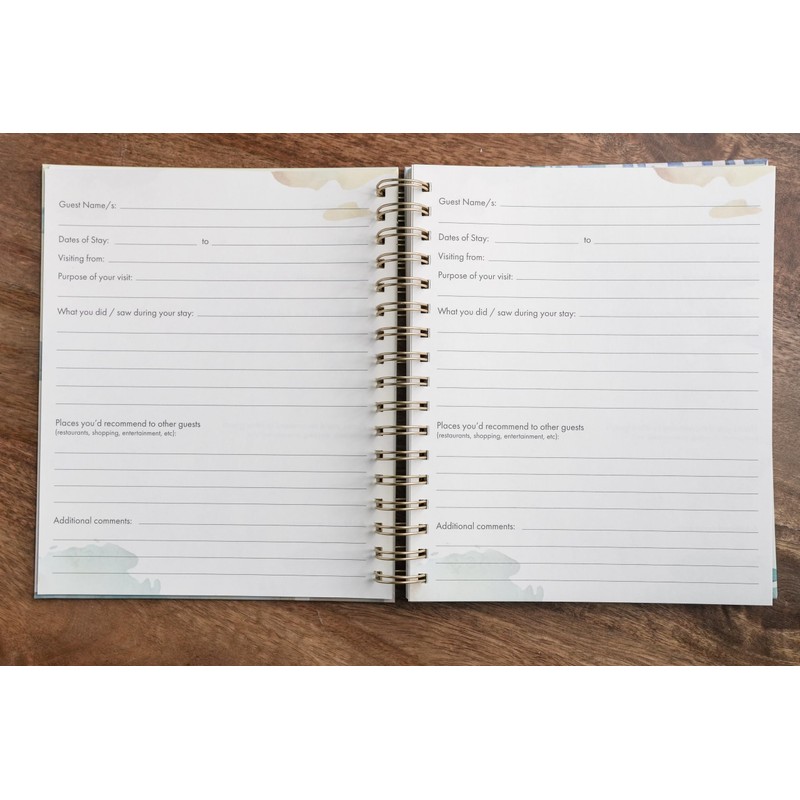 Guest Name/s:
Dates of Stay: to
Visiting from:
Purpose of your visit:
What you did / saw during your stay:
Places you'd recommend to other guests
(restaurants, shopping, entertainment, etc):
Additional comments:
Guest Name/s:
Dates of Stay: to
Visiting from:
Purpose of your visit:
What you did / saw during your stay:
Places you'd recommend to other guests
(restaurants, shopping, entertainment, etc):
Additional comments: